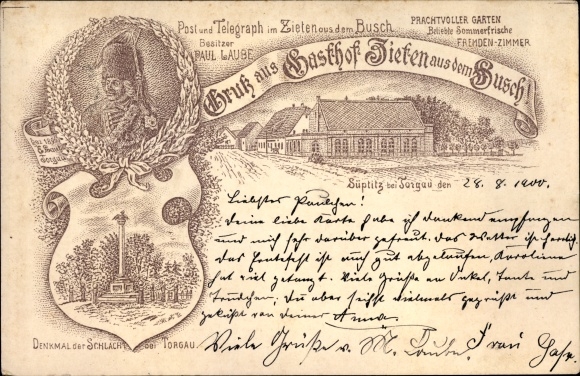 Post und Telegraph im Zieten aus dem Busch.
Besitzer
PAUL LAUBE
PRACHTVOLLER GARTEN
Beliebte Sommerfrische
FREMDEN-ZIMMER
Gruß aus Gasthof Zieten aus dem Busch!
Torgau
Süptitz bei Torgau den 28. 8. 1900.
Liebstes Paulchen!
Deine liebe Karte habe ich dankend empfangen
und mich sehr darüber gefreut. Das Wetter ist herrlich.
Das Erntefest ist auch gut abgelaufen, Karoline
hat viel getanzt. Viele Grüße an Onkel, Tante und
du aber seist vielmals gegrüßt und
geküßt von deiner Anna.
Viele Grüße v. M. Laube. Frau
DENKMAL der SCHLACHT bei TORGAU.